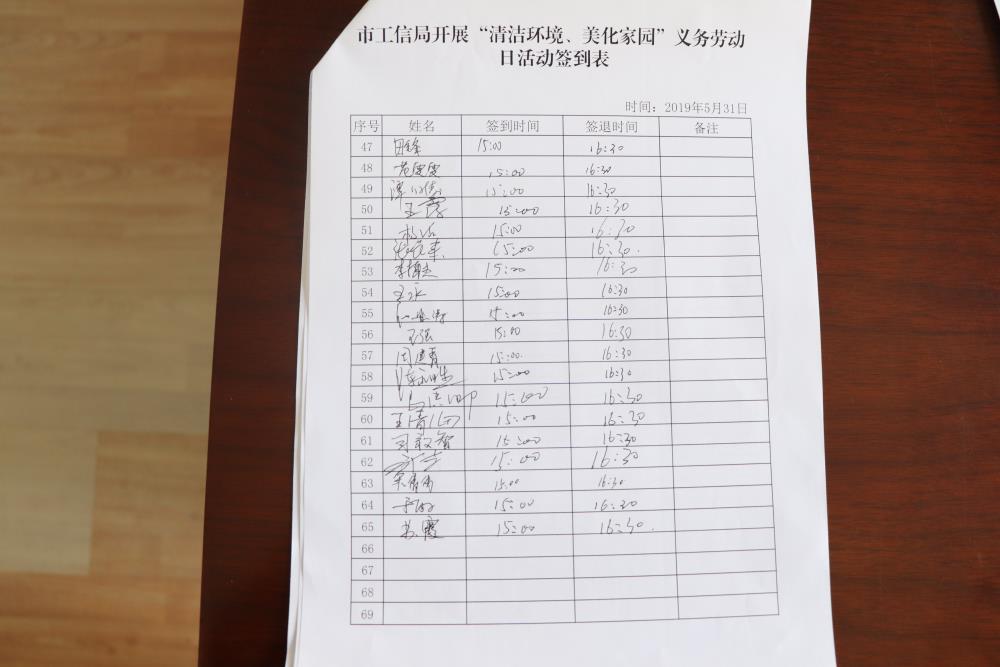 市工信局开展“清洁环境、美化家园”义务劳动
日活动签到表
时间：2019年5月31日
序号 姓名 签到时间 签退时间 备注
47 田锋 15:00 16:30
48 15:00 16:30
49 15:00 16:30
50 王 15:00 16:30
51 15:00 16:30
52 15:00 16:30
53 李 15:00 16:30
54 王永 15:00 16:30
55 15:00 16:30
56 王强 15:00 16:30
57 周建青 15:00 16:30
58 15:00 16:30
59 15:00 16:30
60 王倩 15:00 16:30
61 司敬智 15:00 16:30
62 15:00 16:30
63 15:00 16:30
64 15:00 16:30
65 苏霞 15:00 16:30
66
67
68
69